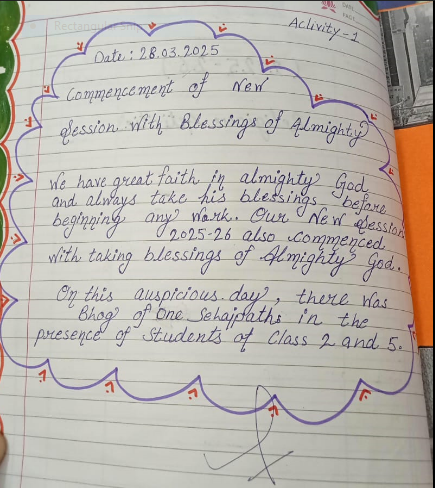 Activity-1
Date: 28.03.2025
Commencement of New
Session With Blessings of Almighty
We have great faith in almighty God,
and always take his blessings before
beginning any Work. Our New Session
2025-26 also commenced
With taking blessings of Almighty God.
On this auspicious day, there Was
Bhog of One Sehajpaths in the
presence of Students of Class 2 and 5.